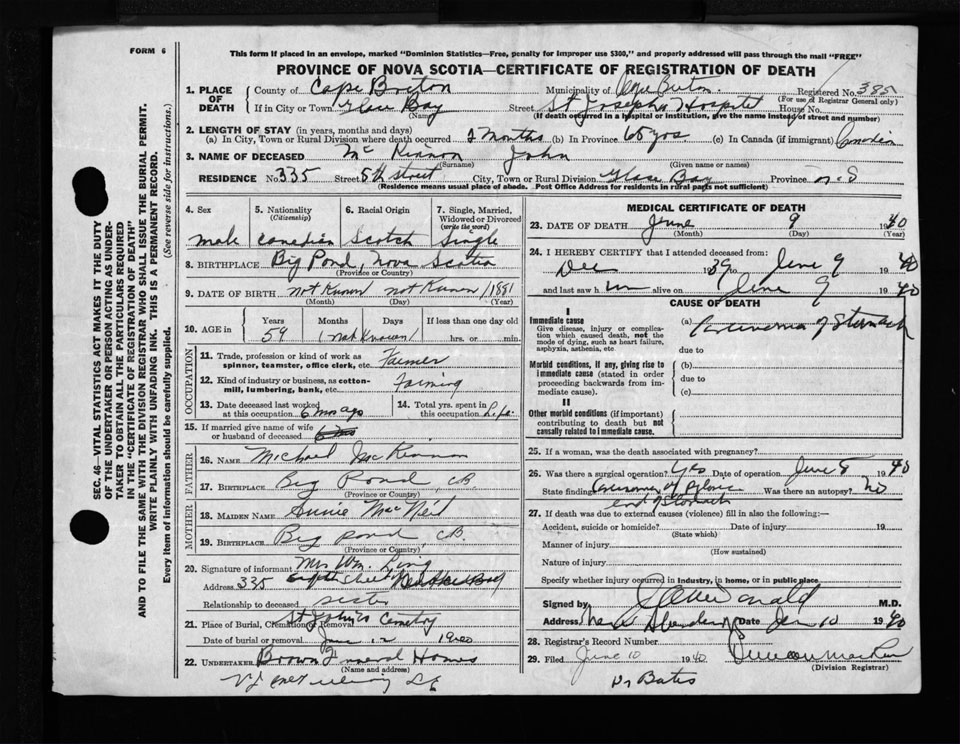 FORM 6
This form if placed in an envelope, marked "Dominion Statistics—Free, penalty for improper use $300," and properly addressed will pass through the mail "FREE"
PROVINCE OF NOVA SCOTIA—CERTIFICATE OF REGISTRATION OF DEATH
SEC. 46—VITAL STATISTICS ACT MAKES IT THE DUTY
OF THE UNDERTAKER OR PERSON ACTING AS UNDER-
TAKER TO OBTAIN ALL THE PARTICULARS REQUIRED
IN THE "CERTIFICATE OF REGISTRATION OF DEATH"
AND TO FILE THE SAME WITH THE DIVISION REGISTRAR WHO SHALL ISSUE THE BURIAL PERMIT.
WRITE PLAINLY WITH UNFADING INK. THIS IS A PERMANENT RECORD.
Every item of information should be carefully supplied. (See reverse side for instructions.)
1. PLACE OF DEATH County of Cape Breton Municipality of Cape Breton Registered No. 385
(For use of Registrar General only)
If in City or Town Glace Bay (Name) Street St Joseph's Hospital House No.
(If death occurred in a hospital or institution, give the name instead of street and number)
2. LENGTH OF STAY (in years, months and days)
(a) In City, Town or Rural Division where death occurred 2 months (b) In Province 60 yrs (c) In Canada (if immigrant) Canadian
3. NAME OF DECEASED Mc Kinnon John
(Surname) (Given name or names)
RESIDENCE No. 335 Street 8th Street City, Town or Rural Division Glace Bay Province N.S
(Residence means usual place of abode. Post Office Address for residents in rural parts not sufficient)
4. Sex 5. Nationality (Citizenship) 6. Racial Origin 7. Single, Married, Widowed or Divorced (write the word)
male Canadian Scotch Single
8. BIRTHPLACE Big Pond, Nova Scotia
(Province or Country)
9. DATE OF BIRTH not Known not Known 1881
(Month) (Day) (Year)
10. AGE in Years Months Days If less than one day old
59 (not Known) hrs. or min.
OCCUPATION
11. Trade, profession or kind of work as spinner, teamster, office clerk, etc. Farmer
12. Kind of industry or business, as cotton-mill, lumbering, bank, etc. Farming
13. Date deceased last worked at this occupation 6 mos ago 14. Total yrs. spent in this occupation Life
15. If married give name of wife or husband of deceased
FATHER
16. NAME Michael MacKinnon
17. BIRTHPLACE Big Pond, CB
(Province or Country)
MOTHER
18. MAIDEN NAME Annie MacNeil
19. BIRTHPLACE Big Pond, C.B.
(Province or Country)
20. Signature of informant Mrs Wm. Ling
Address 335 Eighth Street
Relationship to deceased sister
21. Place of Burial, Cremation or Removal St John's Cemetry
Date of burial or removal June 12 1940
22. UNDERTAKER Brown Funeral Homes
(Name and address)
MEDICAL CERTIFICATE OF DEATH
23. DATE OF DEATH June 9 1940
(Month) (Day) (Year)
24. I HEREBY CERTIFY that I attended deceased from:
Dec 1939 to June 9 1940
and last saw him alive on June 9 1940
CAUSE OF DEATH
I
Immediate cause
Give disease, injury or complication which caused death, not the mode of dying, such as heart failure, asphyxia, asthenia, etc. (a) Carcinoma of Stomach
due to
Morbid conditions, if any, giving rise to immediate cause (stated in order proceeding backwards from immediate cause). (b)
due to
(c)
II
Other morbid conditions (if important) contributing to death but not causally related to immediate cause.
25. If a woman, was the death associated with pregnancy?
26. Was there a surgical operation? Yes Date of operation June 8 1940
State finding Carcinoma of Pyloric end of Stomach Was there an autopsy? no
27. If death was due to external causes (violence) fill in also the following:—
Accident, suicide or homicide? Date of injury 19
(State which)
Manner of injury
(How sustained)
Nature of injury
Specify whether injury occurred in industry, in home, or in public place
Signed by M.D.
Address Date Jun 10 1940
28. Registrar's Record Number
29. Filed June 10 1940
(Division Registrar)
Dr Bates